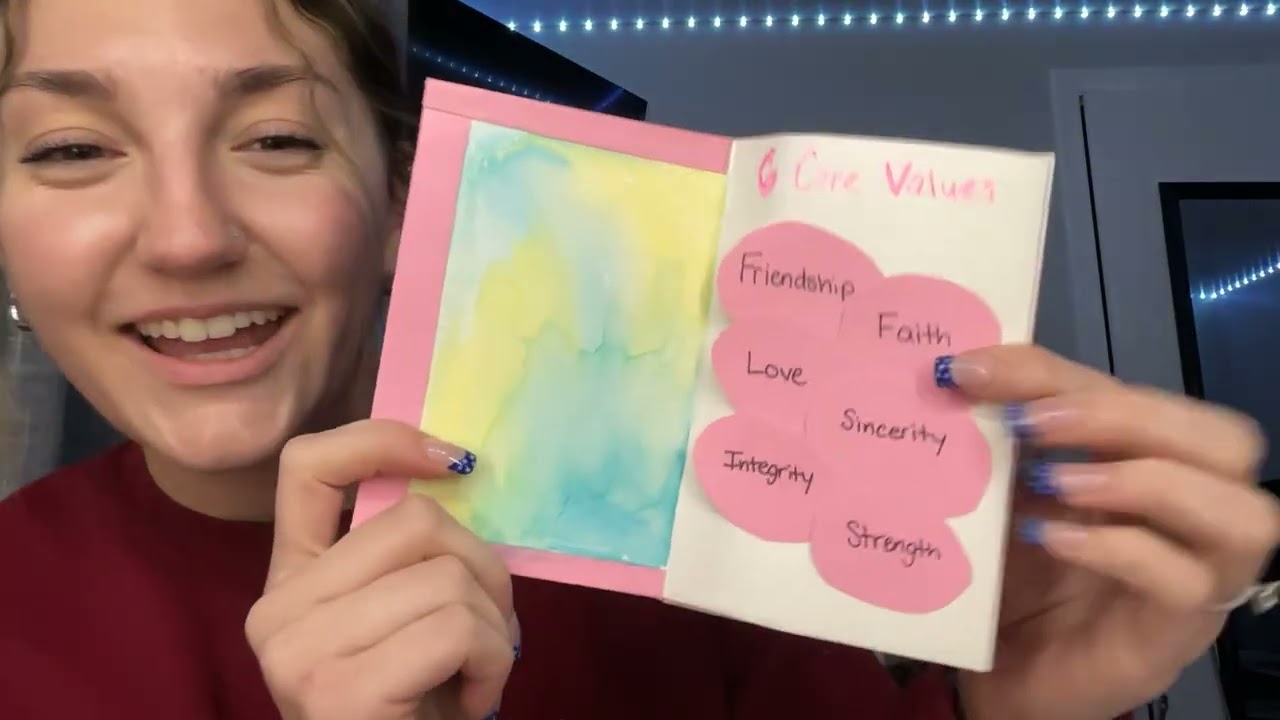 6 Core Values
Friendship
Faith
Love
Sincerity
Integrity
Strength